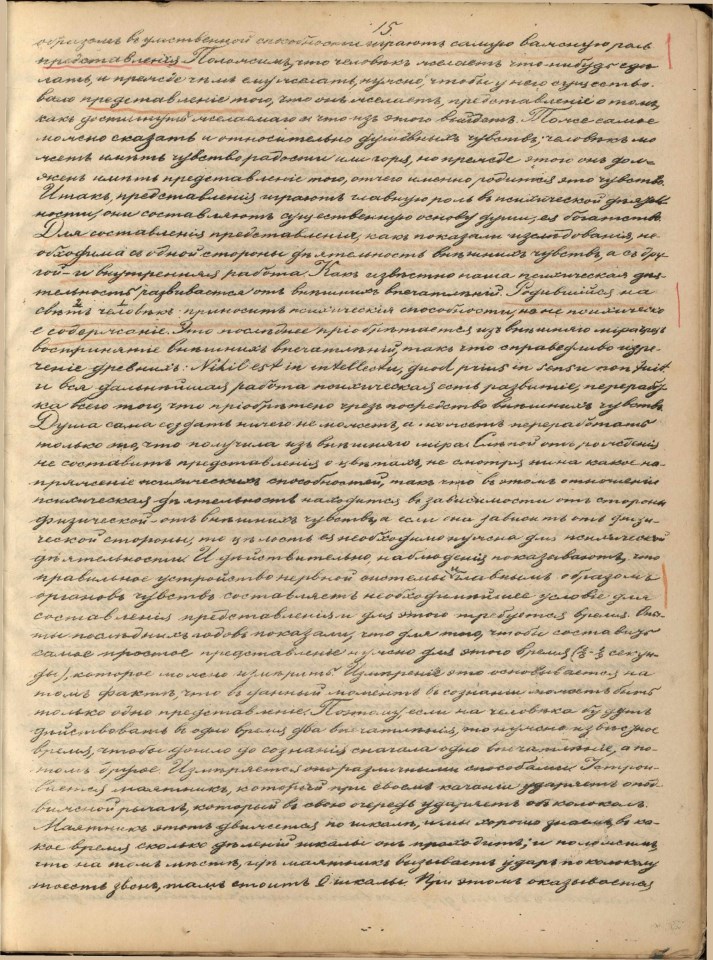 15
образомъ въ умственной способности играютъ самую важную роль
представленія. Положимъ, что человѣкъ желаетъ что нибудь сдѣ
лать, и прежде чѣмъ ему желать, нужно, чтобы у него существо-
вало представленіе того, что онъ желаетъ, представленіе о томъ,
какъ достигнуть желаемаго и что изъ этого выйдетъ. Тоже самое
можно сказать и относительно душевныхъ чувствъ: человѣкъ мо
жетъ имѣть чувство радости или горя, но прежде этого онъ дол-
женъ имѣть представленіе того, отчего именно родится это чувство.
Итакъ, представленія играютъ главную роль въ психической дѣятель
ности; они составляютъ существенную основу души, ея богатство.
Для составленія представленія, какъ показали изслѣдованія, не-
обходима съ одной стороны дѣятельность внѣшнихъ чувствъ, а съ дру
гой - и внутренняя работа. Какъ извѣстно наша психическая дѣя
тельность развивается отъ внѣшнихъ впечатлѣній. Родившійся на
свѣтъ человѣкъ приноситъ психическія способности, но не психическо
е содержаніе. Это послѣднее пріобрѣтается изъ внѣшняго міра чрезъ
воспринятіе внѣшнихъ впечатлѣній, такъ что справедливо изре-
ченіе древнихъ: Nihil est in intellectu, quod prius in sensu non fuit
и вся дальнѣйшая работа психическая есть развитіе, переработ
ка всего того, что пріобрѣтено чрезъ посредство внѣшнихъ чувствъ.
Душа сама создать ничего не можетъ, а можетъ переработать
только то, что получила изъ внѣшняго міра. Слѣпой отъ рожденія
не составитъ представленія о цвѣтахъ, не смотря ни на какое на-
пряженіе психическихъ способностей, такъ что въ этомъ отношеніи
психическая дѣятельность находится въ зависимости отъ стороны
физической - отъ внѣшнихъ чувствъ, а если она зависитъ отъ физи-
ческой стороны, то цѣлость ея необходимо нужна для психической
дѣятельности. И дѣйствительно, наблюденія показываютъ, что
правильное устройство нервной системы и главнымъ образомъ
органовъ чувствъ составляетъ необходимѣйшее условіе для
составленія представленія и для этого требуется время. Опы-
ты послѣднихъ годовъ показали, что для того, чтобы составить
самое простое представленіе нужно для этого время секун-
ды), которое можно измѣрить. Измѣреніе это основывается на
томъ фактѣ, что въ данный моментъ въ сознаніи можетъ быть
только одно представленіе. Поэтому, если на человѣка будутъ
дѣйствовать въ одно время два впечатлѣнія, то нужно извѣстное
время, чтобы дошло до сознанія сначала одно впечатлѣніе, а по-
томъ другое. Измѣряется оно различными способами. Устраи-
вается маятникъ, который при своемъ качаніи ударяетъ
рычагъ, который въ свою очередь ударяетъ объ колоколъ.
Маятникъ этотъ движется по шкалѣ, и мы хорошо знаемъ, въ ка-
кое время сколько дѣленій шкалы онъ проходитъ; и положимъ,
что на томъ мѣстѣ, гдѣ маятникъ вызываетъ ударъ по колоколу
тоесть звонъ, тамъ стоитъ 0 шкалы. При этомъ оказывается